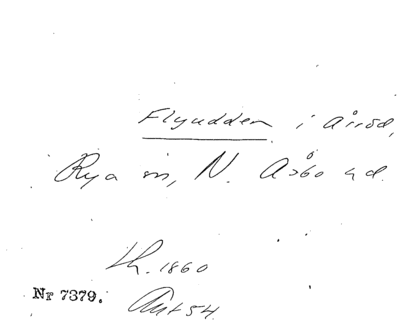 Flyudden i Årröd,
Rya sn, N. Åsbo hd.
lh. 1860
Nr 7379. Ant 54